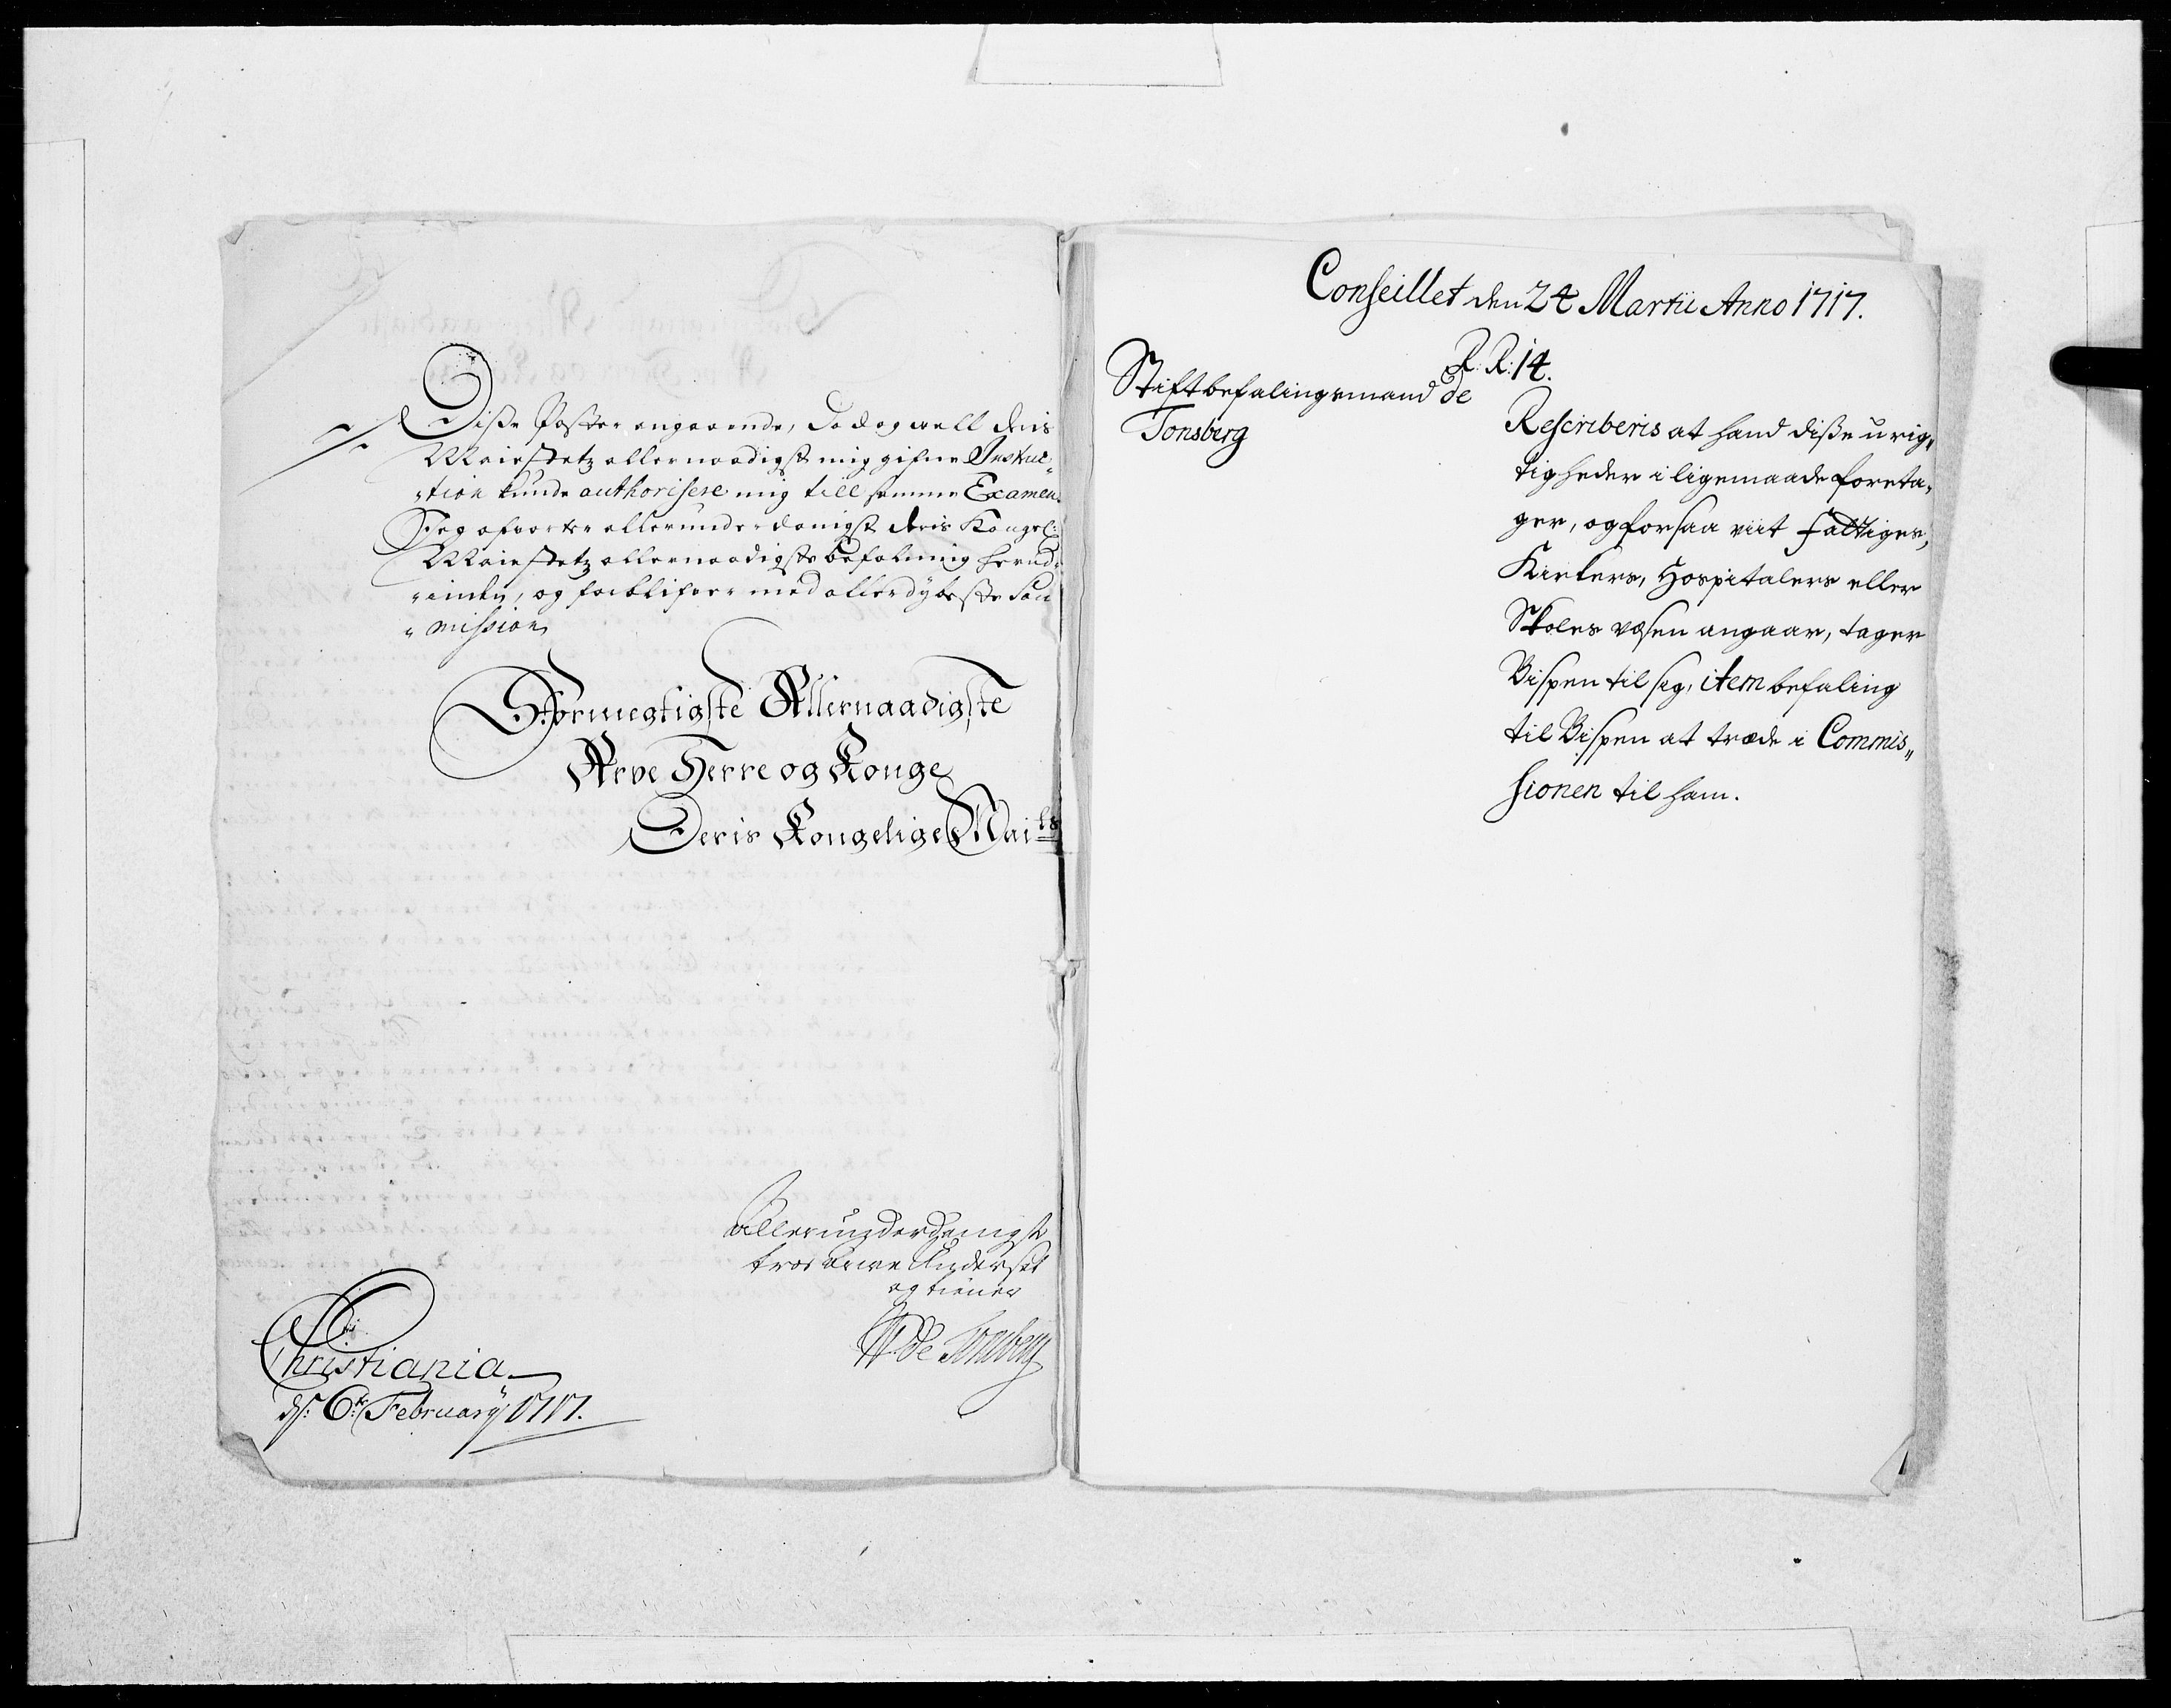 Diße Poster angaaende, Da dog vell Deris
Maiestetz allernaadigst mig gifne Instruc„
„tion kunde authorisere mig till samme Examen.
Jeg afvarter allerunderdanigst Deris Kongel:
Maiestetz allernaadigste befalning herud„
„inden, og forblifver med allerdybeste Sou„
„mission
Stormegtigste Allernaadigste
Arve Herre og Konge
Deris Kongelige Maits
Allerunderdanigst
troe Arve Undersat
og tiener
W de Tonsberg
Christiania
ds: 6te February 1717.
Conseillet den 24 Martii Anno 1717.
R: R: 14.
Stiftbefalingsmand de
Tonsberg
Rescriberis at hand diße urig„
tigheder i ligemaade foreta„
ger, og forsaa viit fattiges,
Kirkers, Hospitalers eller
Skoles væsen angaar, tager
Bispen til sig, item befaling
til Bispen at træde i Commis„
sionen til ham.